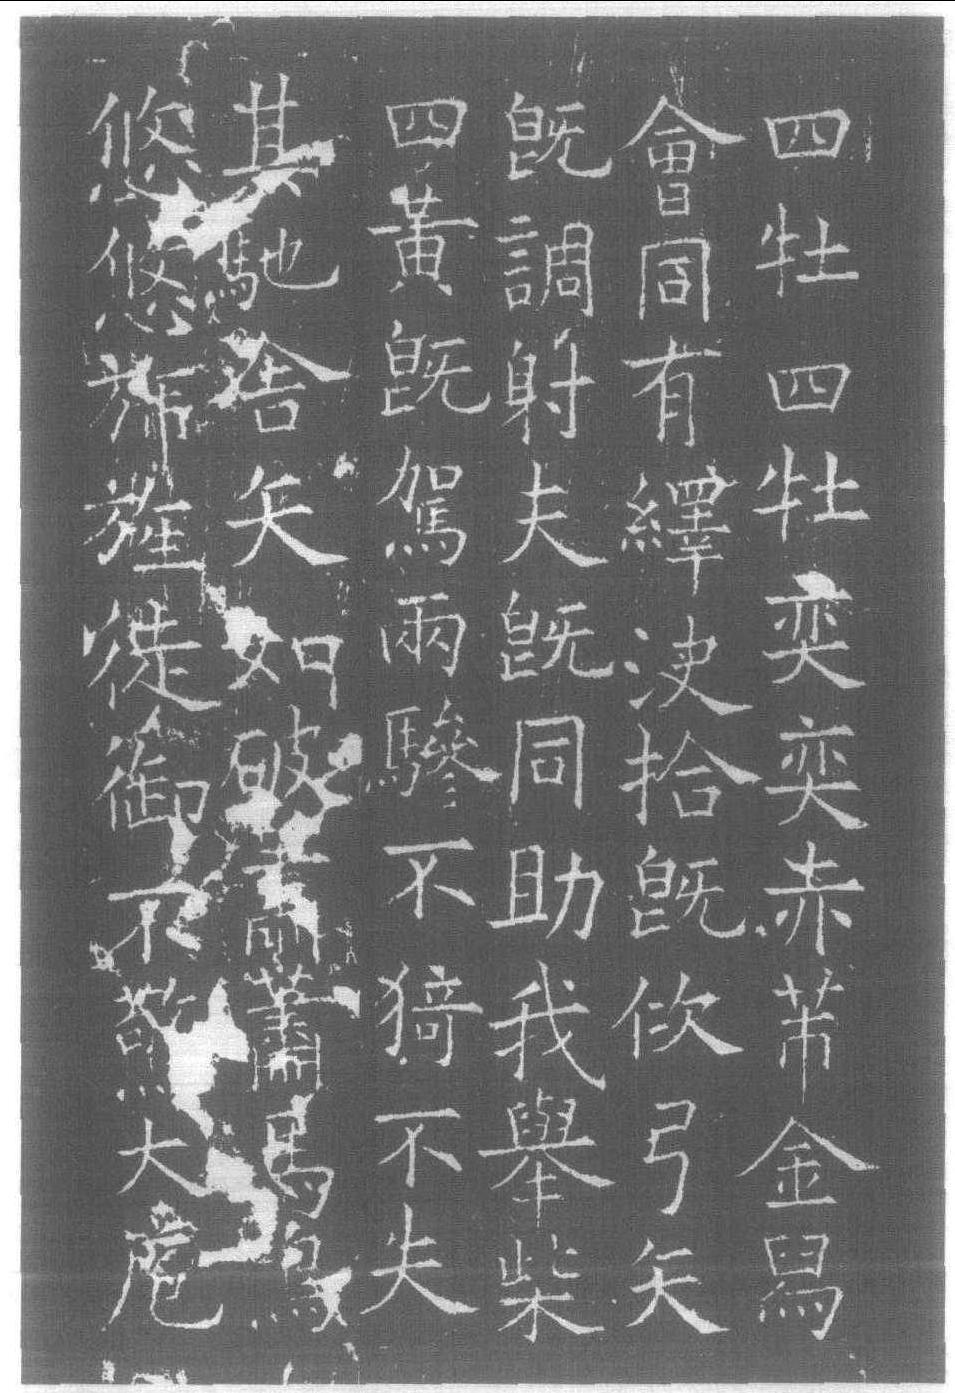 四牡四牡奕奕赤芾金舄
會同有繹決拾既佽弓矢
既調射夫既同助我舉柴
四黃既駕兩驂不猗不失
其馳舍矢如破蕭蕭馬鳴
悠悠旆旌徒御不驚大庖